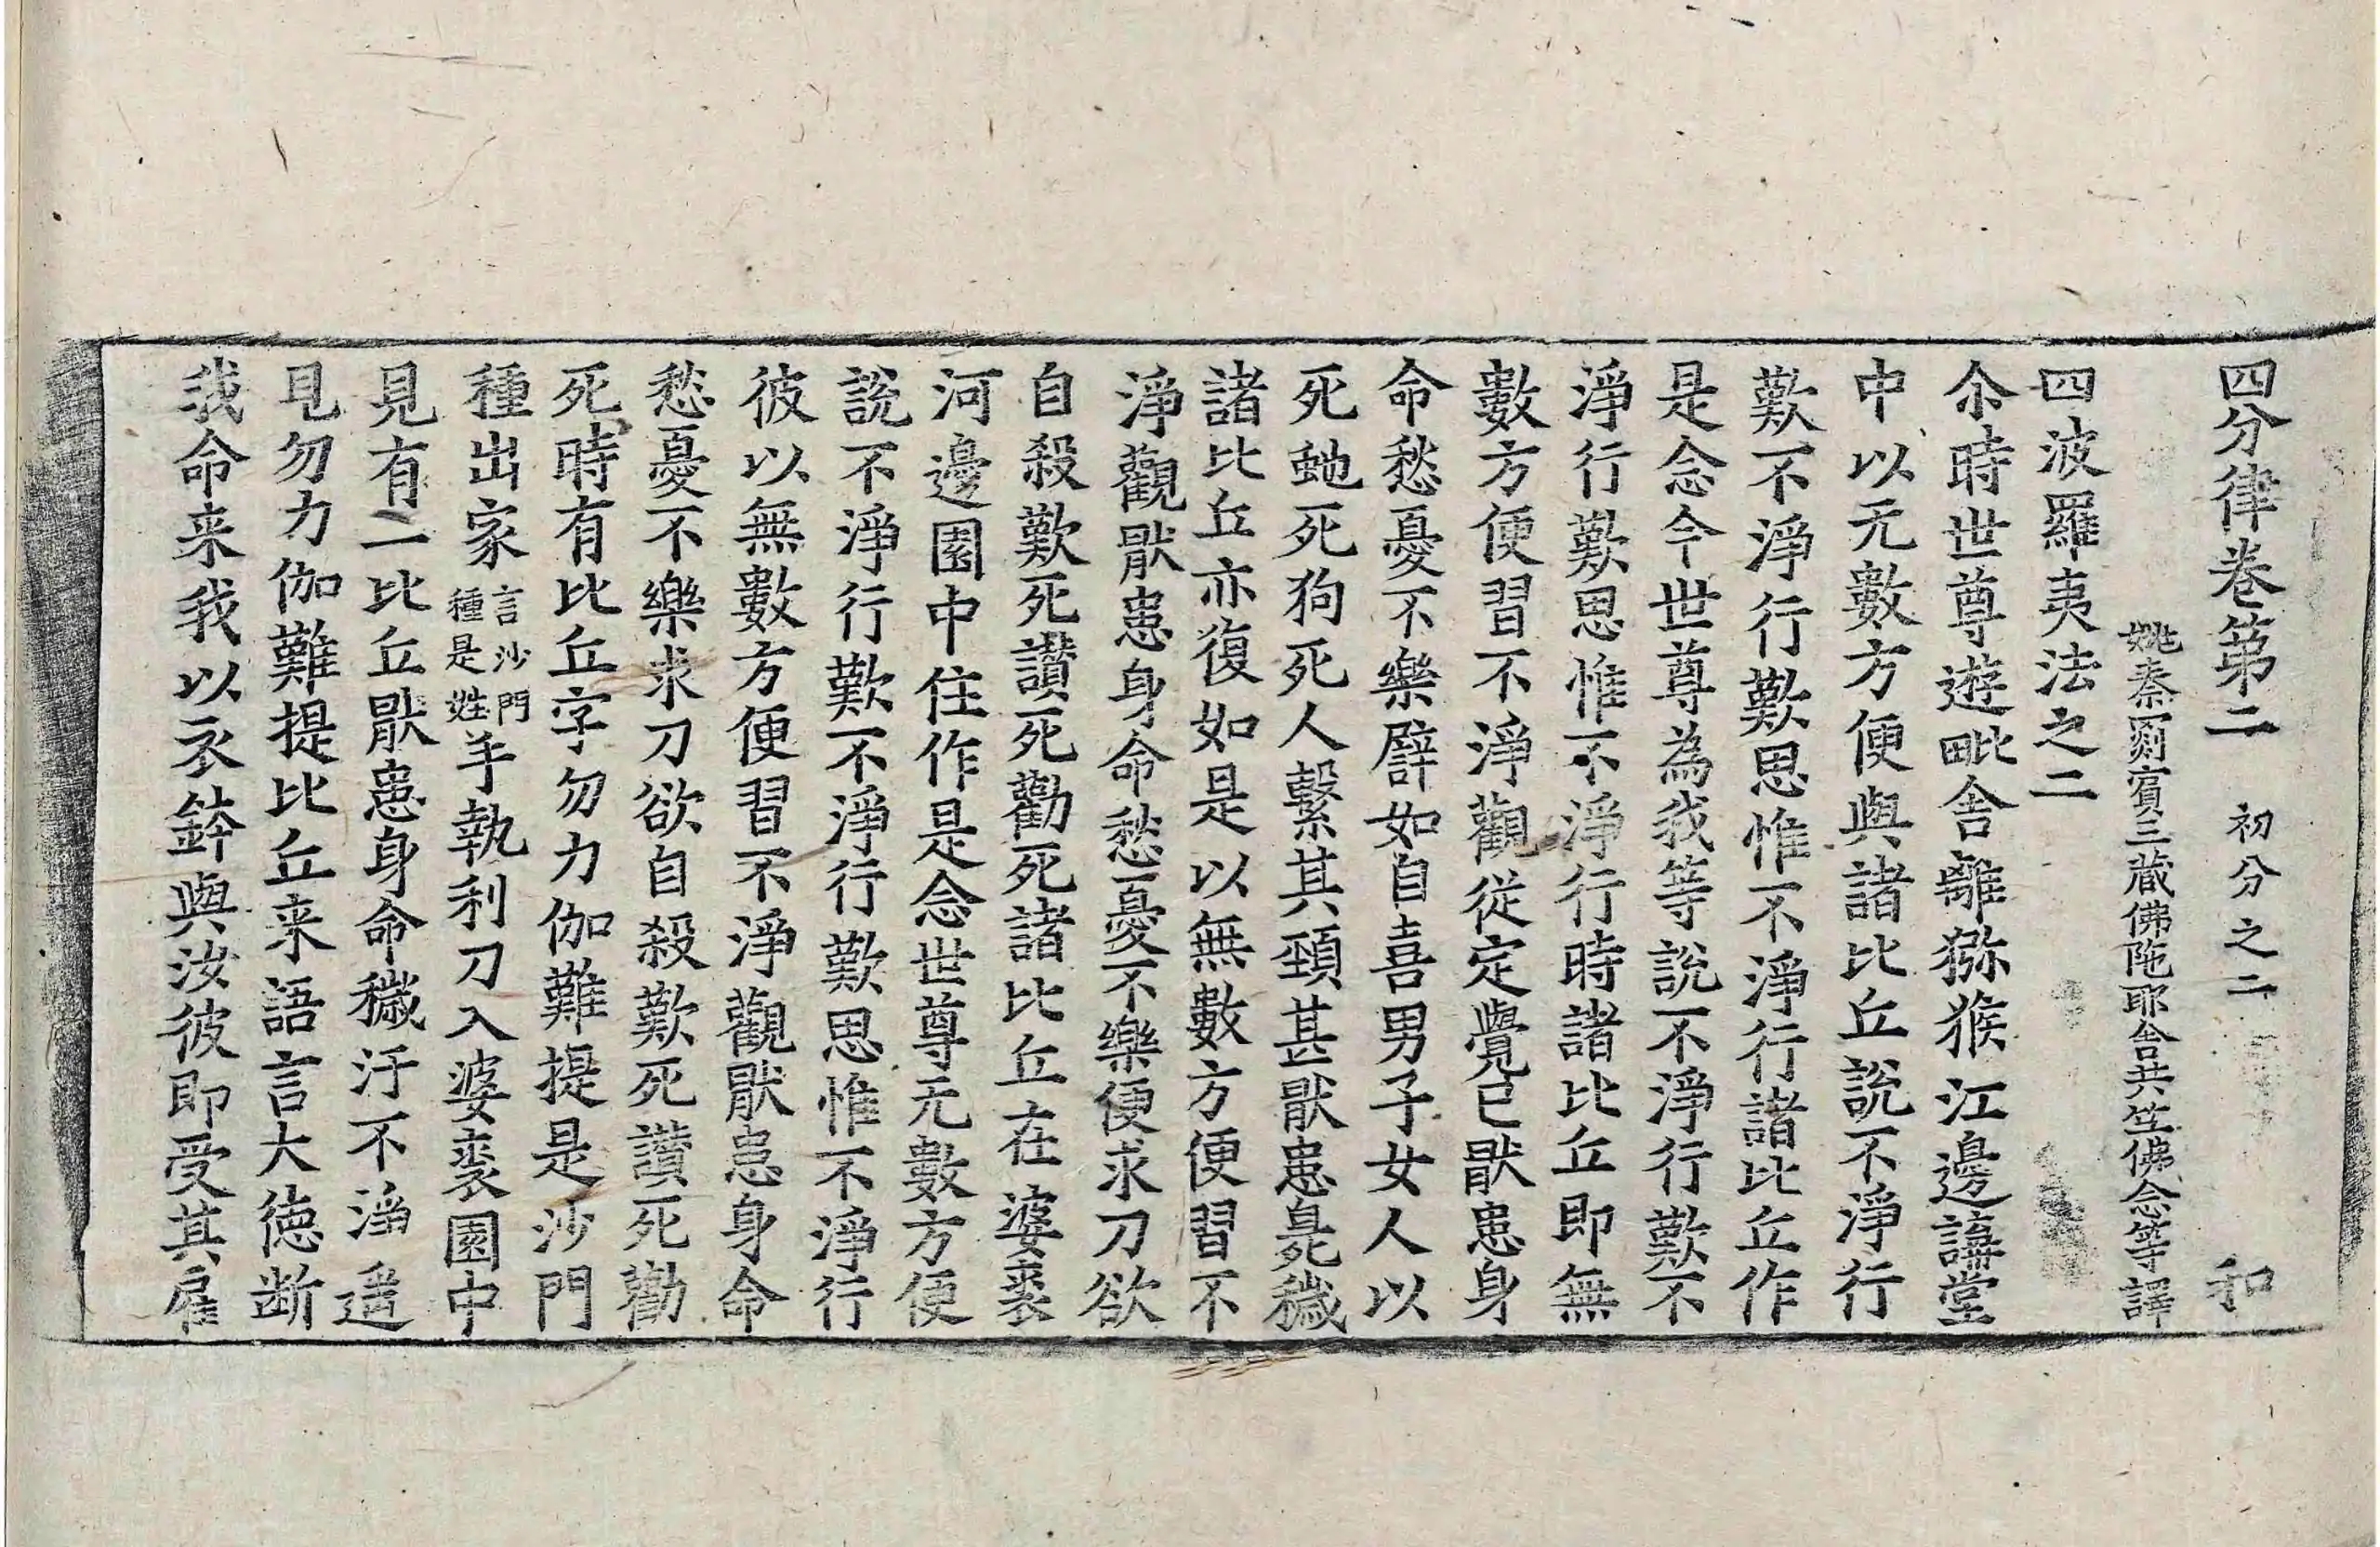 四分律卷第二　初分之二　和
姚秦罽賓三藏佛陁耶舍共竺佛念等譯
四波羅夷法之二
尒時世尊遊毗舍離獼猴江邊講堂
中以无數方便與諸比丘說不淨行
歎不淨行歎思惟不淨行諸比丘作
是念今世尊為我等說不淨行歎不
淨行歎思惟不淨行時諸比丘即無
數方便習不淨觀從定覺已猒患身
命愁憂不樂譬如自喜男子女人以
死虵死狗死人繫其頸甚猒患臭穢
諸比丘亦復如是以無數方便習不
淨觀猒患身命愁憂不樂便求刀欲
自殺歎死讃死勸死諸比丘在婆裘
河邊園中住作是念世尊无數方便
說不淨行歎不淨行歎思惟不淨行
彼以無數方便習不淨觀猒患身命
愁憂不樂求刀欲自殺歎死讃死勸
死時有比丘字勿力伽難提是沙門
種出家言沙門種是姓手執利刀入婆裘園中
見有一比丘猒患身命穢汙不淨遥
見勿力伽難提比丘来語言大德断
我命来我以衣鉢與汝彼即受其雇